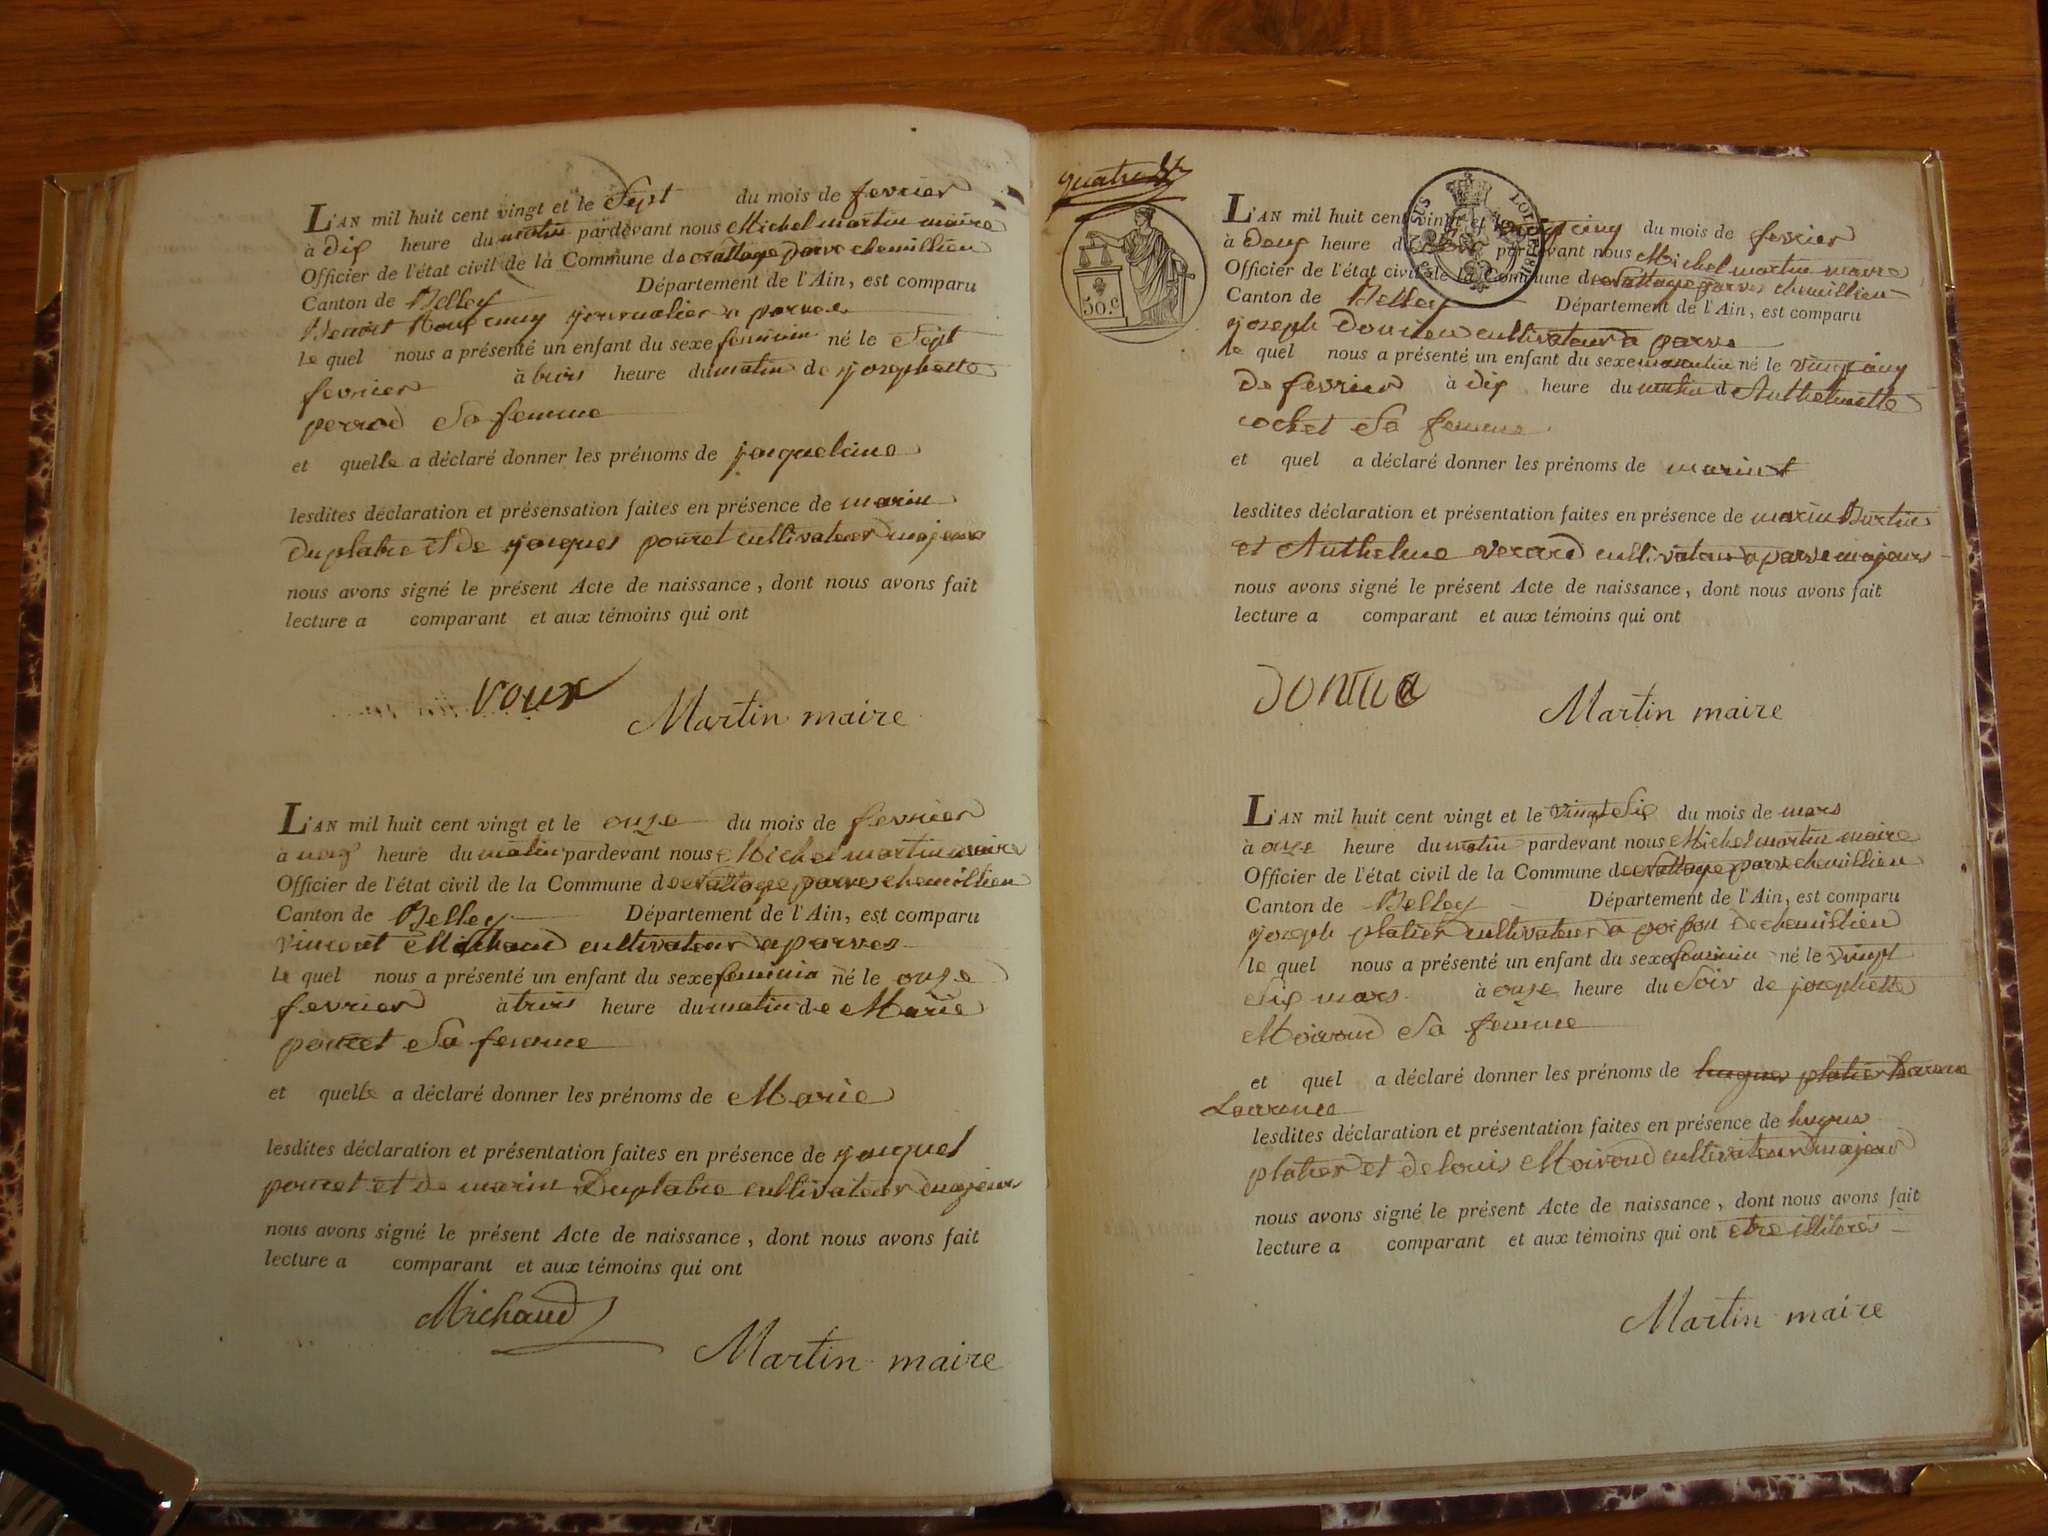 L'AN mil huit cent vingt et le Sept du mois de fevrier
à dix heure du matin pardevant nous Michel martin maire
Officier de l'état civil de la Commune de parves chemillieu
Canton de Belley Département de l'Ain, est comparu
Benoit journalier a parves
le quel nous a présenté un enfant du sexe feminin né le Sept
fevrier à trois heure du matin de josephette
perrod Sa femme
et quelle a déclaré donner les prénoms de jacqueline
lesdites déclaration et présensation faites en présence de marin
Duplatre et de jacques pourret cultivateur majeurs
nous avons signé le présent Acte de naissance, dont nous avons fait
lecture a comparant et aux témoins qui ont
roux
Martin maire
L'AN mil huit cent vingt et le onze du mois de fevrier
à neuf heure du matin pardevant nous Michel martin maire
Officier de l'état civil de la Commune de parves chemillieu
Canton de Belley Département de l'Ain, est comparu
vincent Michaud cultivateur a parves
le quel nous a présenté un enfant du sexe feminin né le onze
fevrier à trois heure du matin de Marie
pourret Sa femme
et quelle a déclaré donner les prénoms de Marie
lesdites déclaration et présentation faites en présence de jacques
pourret et de marin Duplatre cultivateur majeurs
nous avons signé le présent Acte de naissance, dont nous avons fait
lecture a comparant et aux témoins qui ont
Michaud
Martin maire
quatre
50.c
L'AN mil huit cent vingt et le cinq du mois de fevrier
à Deux heure pardevant nous Michel martin maire
Officier de l'état civil de la Commune de parves chemillieu
Canton de Belley Département de l'Ain, est comparu
joseph cultivateur a parves
le quel nous a présenté un enfant du sexe masculin né le vingt cinq
De fevrier à dix heure du matin d Anthelmette
cochet Sa femme
et quel a déclaré donner les prénoms de marin
lesdites déclaration et présentation faites en présence de marin Burtin
et Anthelme verard cultivateur a parves majeurs
nous avons signé le présent Acte de naissance, dont nous avons fait
lecture a comparant et aux témoins qui ont
Martin maire
L'AN mil huit cent vingt et le vingt Six du mois de mars
à onze heure du matin pardevant nous Michel martin maire
Officier de l'état civil de la Commune de parves chemillieu
Canton de Belley Département de l'Ain, est comparu
joseph platier cultivateur a De chemillieu
le quel nous a présenté un enfant du sexe feminin né le vingt
Six mars à onze heure du Soir de josephette
Moiroud Sa femme
et quel a déclaré donner les prénoms de hugues platier
Laurence
lesdites déclaration et présentation faites en présence de hugues
platier et de louis Moiroud cultivateur majeur
nous avons signé le présent Acte de naissance, dont nous avons fait
lecture a comparant et aux témoins qui ont etre illitérés
Martin maire